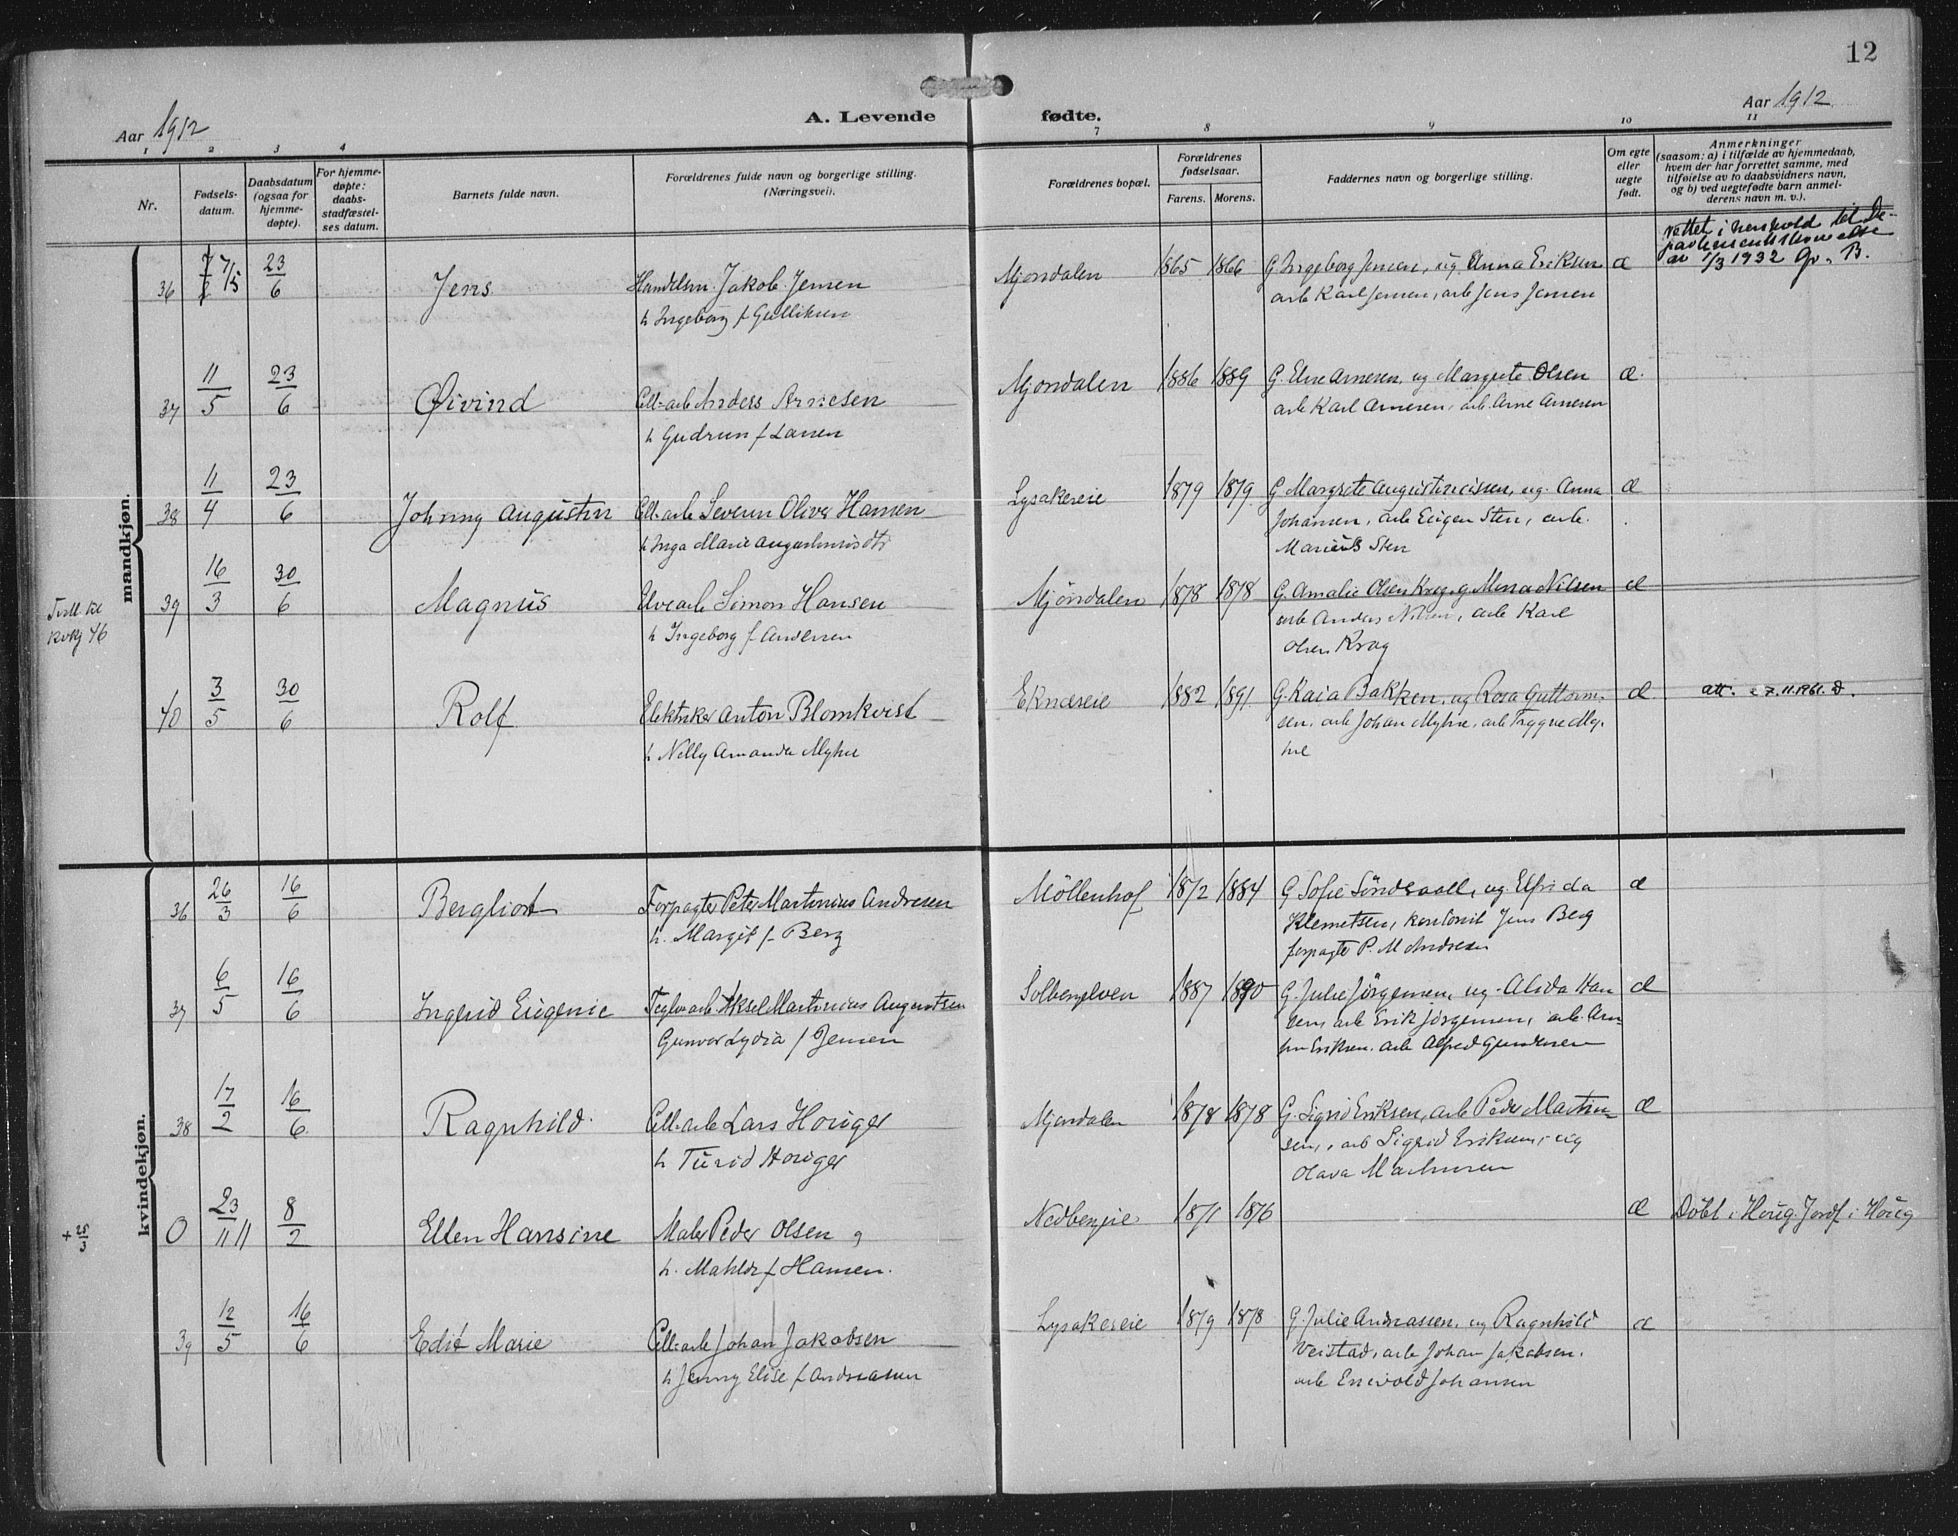 12
Aar 1912
A. Levende fødte.
Aar 1912
1 2 3 4 7 8 9 10 11
Nr.
Fødsels-
datum.
Daabsdatum
(ogsaa for
hjemme-
døpte).
For hjemme-
døpte:
daabs-
stadfæstel-
ses datum.
Barnets fulde navn.
Forældrenes fulde navn og borgerlige stilling.
(Næringsvei).
Forældrenes bopæl.
Forældrenes
fødselsaar.
Farens. Morens.
Faddernes navn og borgerlige stilling.
Om egte
eller
uegte
født.
Anmerkninger
(saasom: a) i tilfælde av hjemmedaab,
hvem der har forrettet samme, med
tilføielse av to daabsvidners navn,
og b) ved uegtefødte barn anmel-
derens navn m. v.).
mandkjøn.
36 7/5 23/6 Jens Handelsm. Jakob Jensen Mjøndalen 1865 1866 G Ingeborg Jensen, ug. Anna Eriksen æ
h Ingeborg f Gulliksen arb Karl Jensen, arb Jens Jensen
rettet i henhold til De-
partementsskrivelse
av 1/3 1932 Gr. B.
37 11/5 23/6 Øivind Cell-arb Anders Arnesen Mjøndalen 1886 1889 G. Else Arnesen, ug Margrete Olsen æ.
h Gudrun f Larsen arb Karl Arnesen, arb. Arne Arnesen
38 11/4 23/6 Johnny Augustin Cell-arb Severin Oliver Hansen Lysakereie 1879 1879 G Margrete Augustinussen, ug. Anna æ
h Inga Marie Augustinusdtr Johansen, arb Eugen Sten, arb.
Marius Sten
39 16/3 30/6 Magnus Elvearb Simon Hansen Mjøndalen 1878 1878 G. Amalie Olsen Krog, g Mina Nilsen æ
h Ingeborg f Andersen arb Anders Nilsen, arb Karl
Olsen Krog
40 3/5 30/6 Rolf Elektriker Anton Blomkvist Eknæseie 1882 1891 G. Kaia Bakken, ug Rosa Guttorm- æ att. 7.11.1961.
h Nelly Amanda Myhre sen, arb Johan Myhre, arb Trygve My-
hre
kvindekjøn.
36 26/3 16/6 Bergliot Forpagter Peter Martinius Andresen Möllenhof 1872 1884 G Sofie Söndsaall, ug. Elfrida æ
h. Margit f. Berg Klemetsen, kontorist Jens Berg
forpagter P. M Andresen
37 6/5 16/6 Ingrid Eugenie Teglv.arb. Aksel Martinius Augustsen Solbergelven 1887 1890 G. Julie Jörgensen, ug. Alida Han æ
Gunvor Lydia f Jensen sen, arb Erik Jörgensen, arb. Arn-
finn Eriksen. arb Alfred Gundersen
38 17/2 16/6 Ragnhild. Cell-arb Lars Horiger Mjøndalen 1878 1878 G. Sigrid Eriksen, arb Peder Martin- æ
h Turid Horiger sen, arb Sigrid Eriksen, ug
Olava Martinsen
0 23/11 11 8/2 Ellen Hansine Maler Peder Olsen og Nedbergeie 1871 1876 æ Döbt i Houg. Jordf. i Houg
h. Mathilde f Hansen.
+ 25/3
39 12/5 16/6 Edit Marie Cell-arb Johan Jakobsen Lysakereie 1879 1878 G. Julie Andreassen, ug Ragnhild æ
h Jenny Elise f Andreassen Veistad, arb Johan Jakobsen.
arb Enevold Johansen